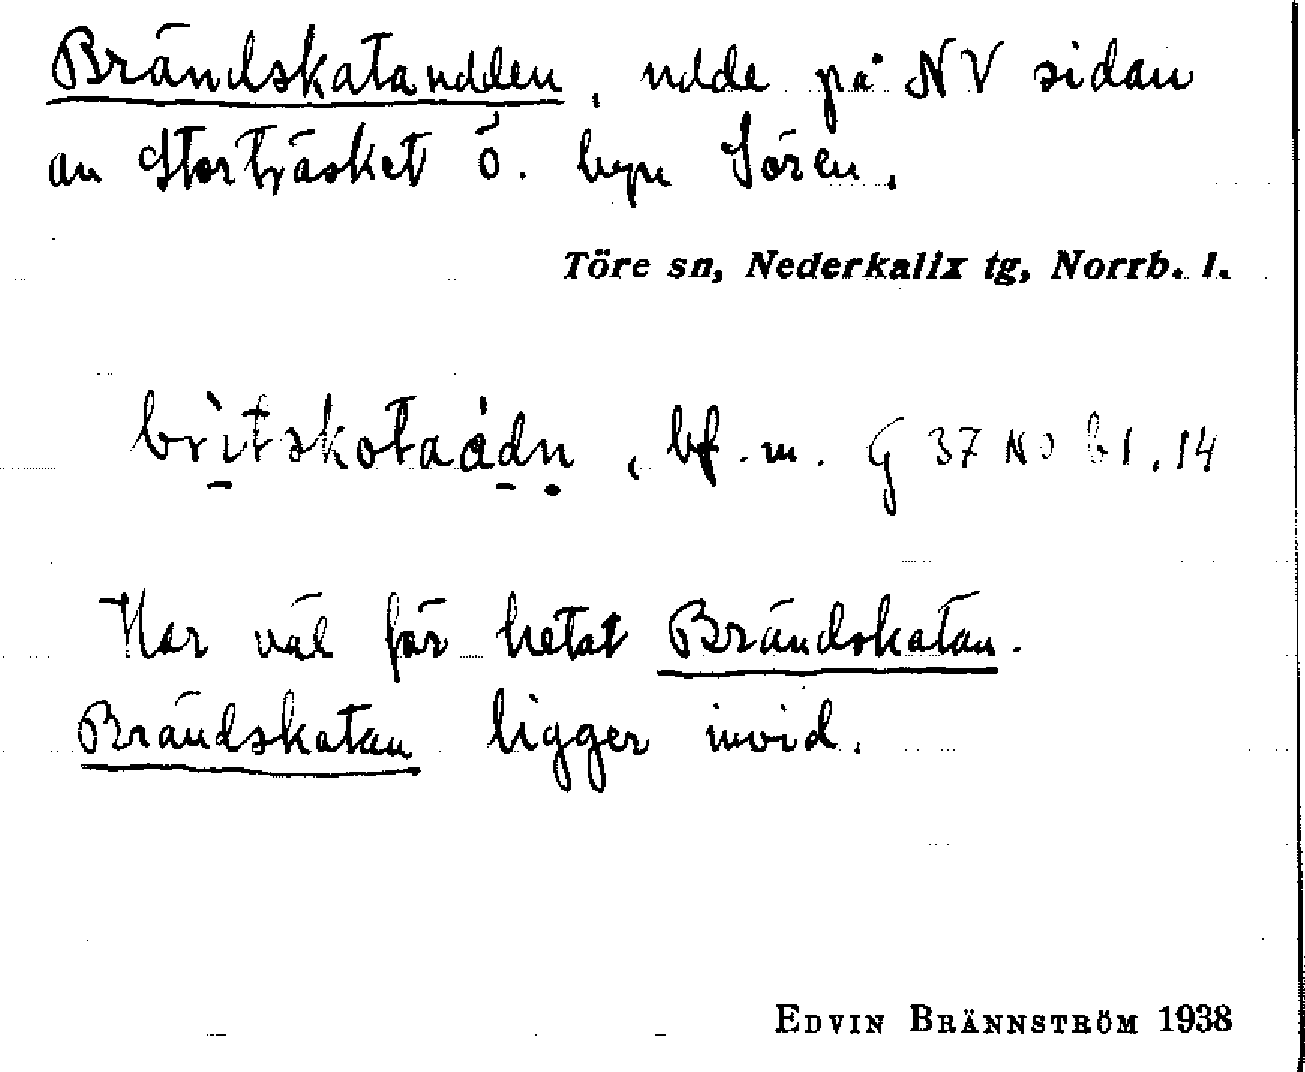 Brändskatanudden, udde på NV sidan
av Storträsket ö. byn Sören.
Töre sn, Nederkalix tg, Norrb. l.
brìtskotaȧdṇ, bf. m. G 37 NO b1. 14
Har väl förr hetat Brändskatan.
Brändskatan ligger invid.
EDVIN BRÄNNSTRÖM 1938